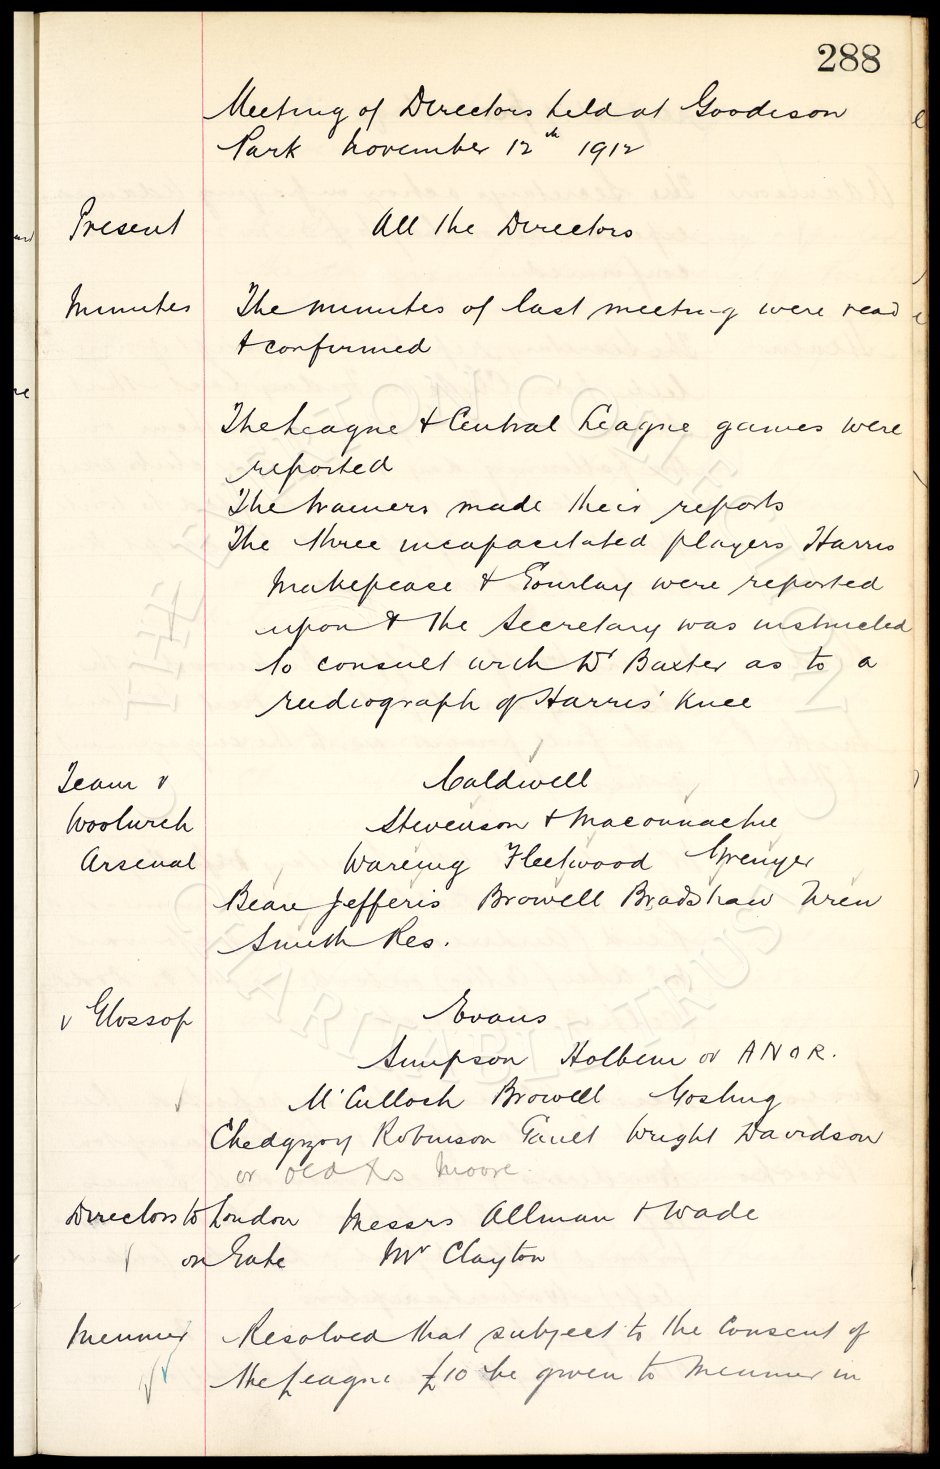 288
Meeting of Directors held at Goodison
Park November 12th 1912
Present All the Directors
Minutes The minutes of last meeting were read
& confirmed
The League & Central League games were
reported
The trainers made their reports
The three incapacitated players Harris
Makepeace & Gourlay were reported
upon & the Secretary was instructed
to consult with Dr Baxter as to a
radiograph of Harris' Knee
Team v Caldwell
Woolwich Stevenson & Maconnachie
Arsenal Wareing Fleetwood Grenyer
Beare Jefferis Browell Bradshaw Uren
Smith Res.
v Glossop Evans
Simpson Holbem or A N O R.
McCulloch Browell Gosling
Chedgzoy Robinson Gault Wright Davidson
or Old Moore
Directors to London Messrs Allman & Wade
on Gate Mr Clayton
Meunier Resolved that subject to the consent of
the League £10 be given to Meunier in